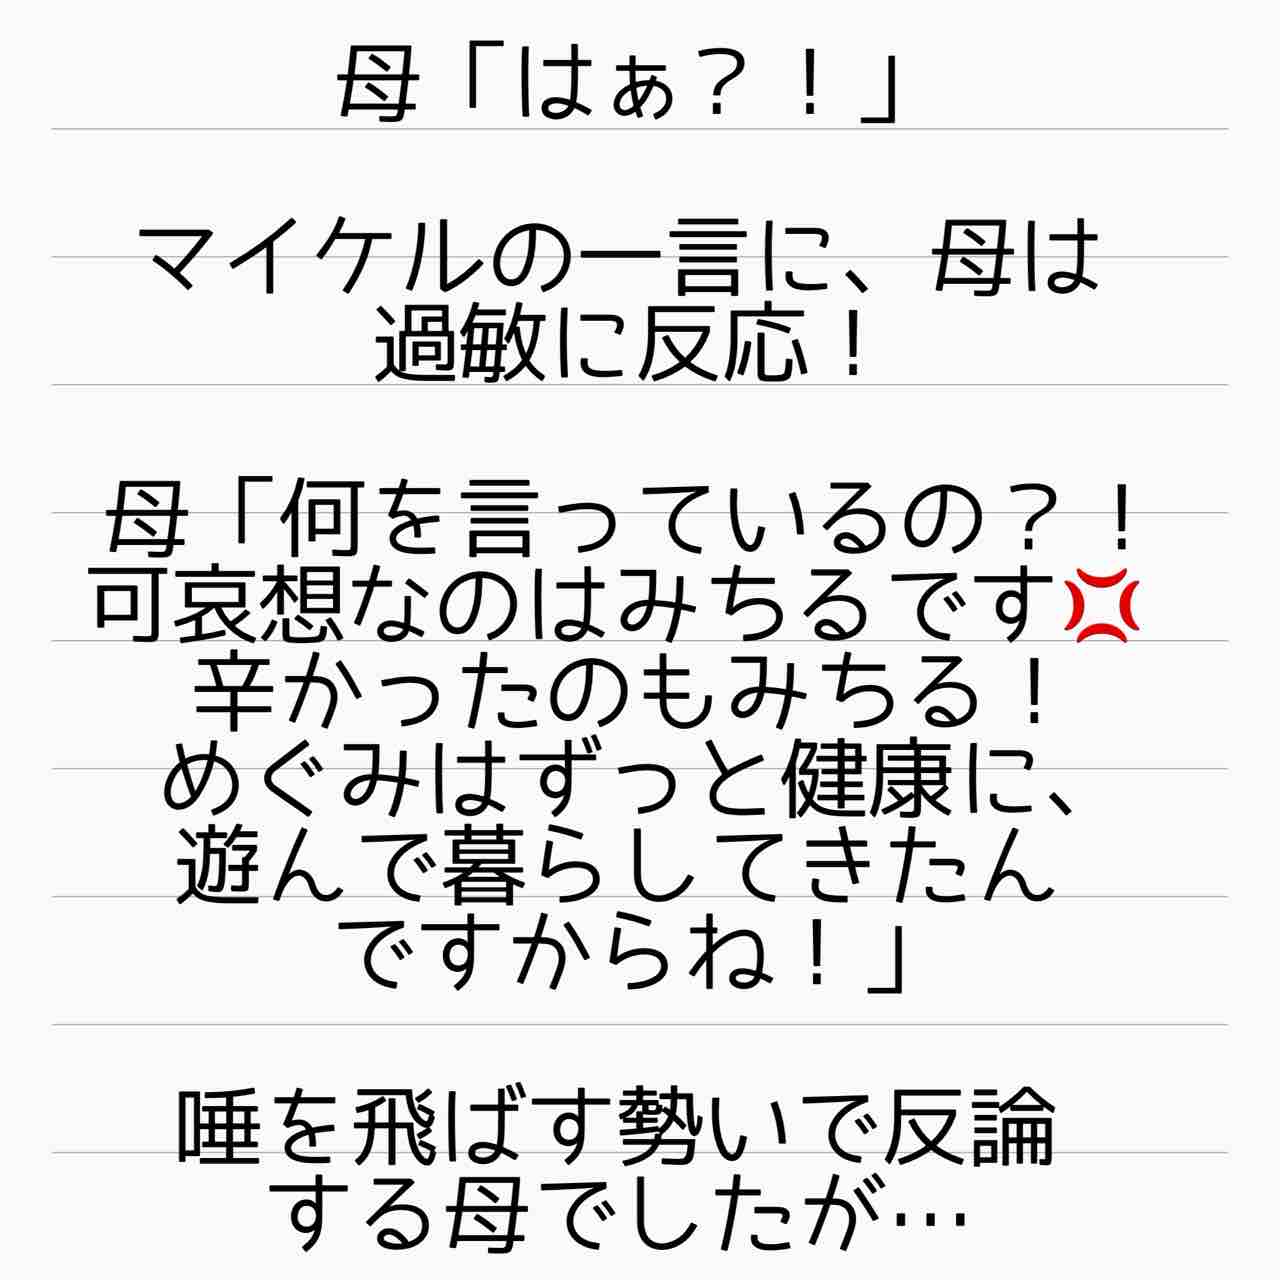 母「はぁ？！」
マイケルの一言に、母は
過敏に反応！
母「何を言っているの？！
可哀想なのはみちるです💢
辛かったのもみちる！
めぐみはずっと健康に、
遊んで暮らしてきたん
ですからね！」
唾を飛ばす勢いで反論
する母でしたが…